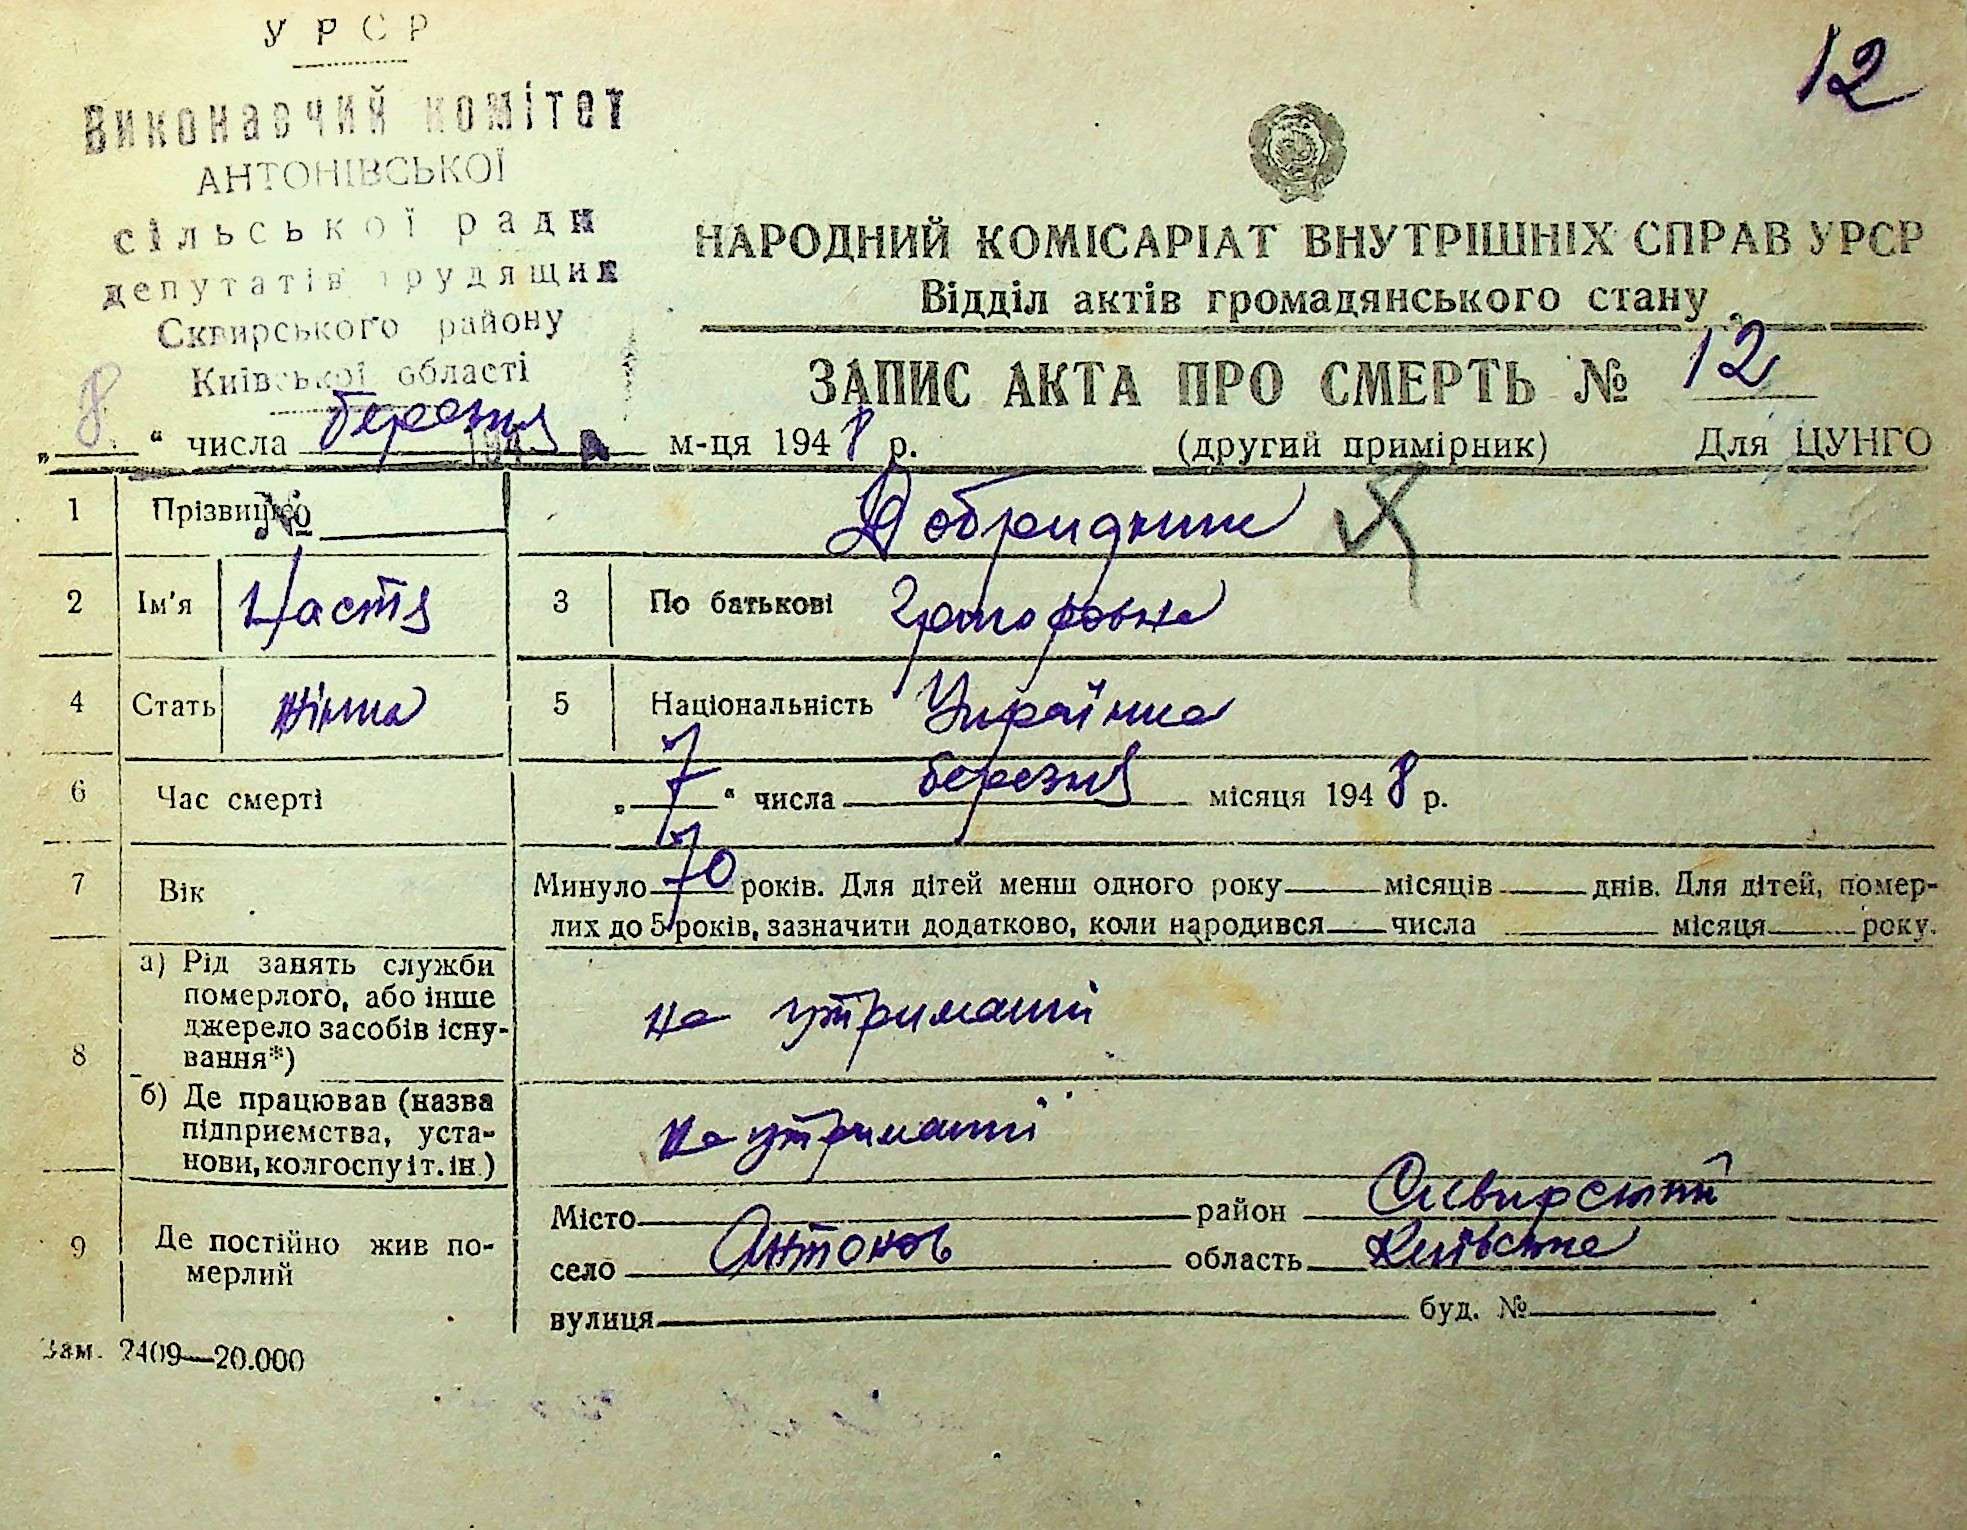 УРСР
12
Виконавчий комітет
АНТОНІВСЬКОЇ
сільської ради
депутатів трудящих
Сквирського району
Київської області
НАРОДНИЙ КОМІСАРІАТ ВНУТРІШНІХ СПРАВ УРСР
Відділ актів громадянського стану
ЗАПИС АКТА ПРО СМЕРТЬ № 12
„ 8 “ числа березня м-ця 1948 р. (другий примірник) Для ЦУНГО
194 р.
1 Прізвище
№
2 Ім'я Настя 3 По батькові Григоровна
4 Стать жінка 5 Національність Українка
6 Час смерті „ 7 “ числа березня місяця 1948 р.
7 Вік Минуло 70 років. Для дітей менш одного року місяців днів. Для дітей, помер-
лих до 5 років, зазначити додатково, коли народився числа місяця року.
8 а) Рід занять служби
померлого, або інше
джерело засобів існу-
вання*)
на утриманні
б) Де працював (назва
підприємства, уста-
нови, колгоспу і т. ін.)
на утриманні
9 Де постійно жив по-
мерлий
Місто район Сквирський
село Антонов область Київська
вулиця буд. №
Зам. 2409—20.000